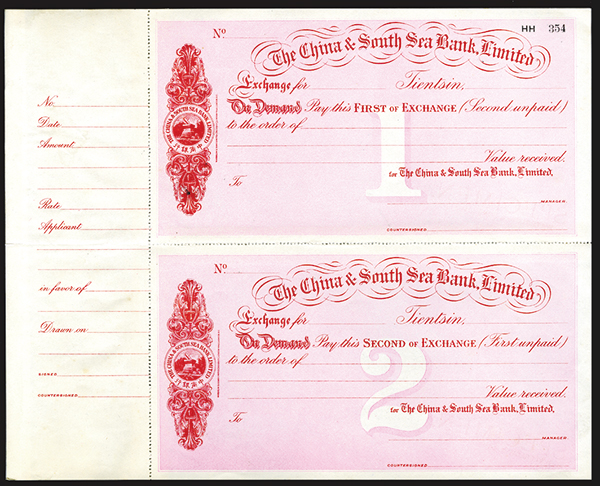 No.
Date
Amount
Rate
Applicant
in favor of
Drawn on
SIGNED
COUNTERSIGNED
No HH 354
The China & South Sea Bank, Limited
Exchange for Tientsin,
On Demand Pay this FIRST OF EXCHANGE (Second unpaid)
to the order of
1
Value received.
To for The China & South Sea Bank, Limited.
MANAGER.
COUNTERSIGNED
THE CHINA & SOUTH SEA BANK, LIMITED
行銀南中
No
The China & South Sea Bank, Limited
Exchange for Tientsin,
On Demand Pay this SECOND OF EXCHANGE (First unpaid)
to the order of
2
Value received.
To for The China & South Sea Bank, Limited.
MANAGER.
COUNTERSIGNED
THE CHINA & SOUTH SEA BANK, LIMITED
行銀南中